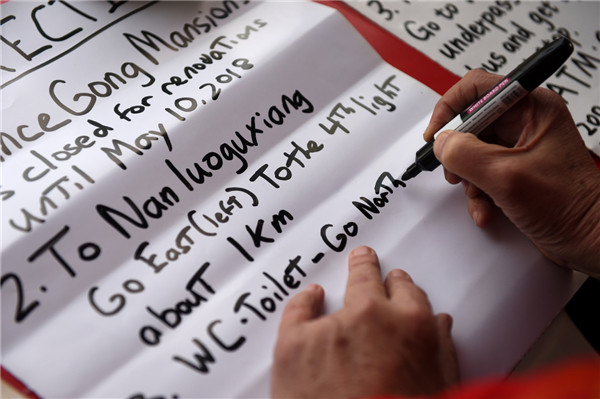 RECTI
ince Gong Mansions
s closed for renovations
UNTIL May 10, 2018
2. To Nanluoguxiang
Go East (left) To the 4Th light
about 1Km
WC-Toilet - Go North
3.
Go to
underpass
us and get
ATM.
200